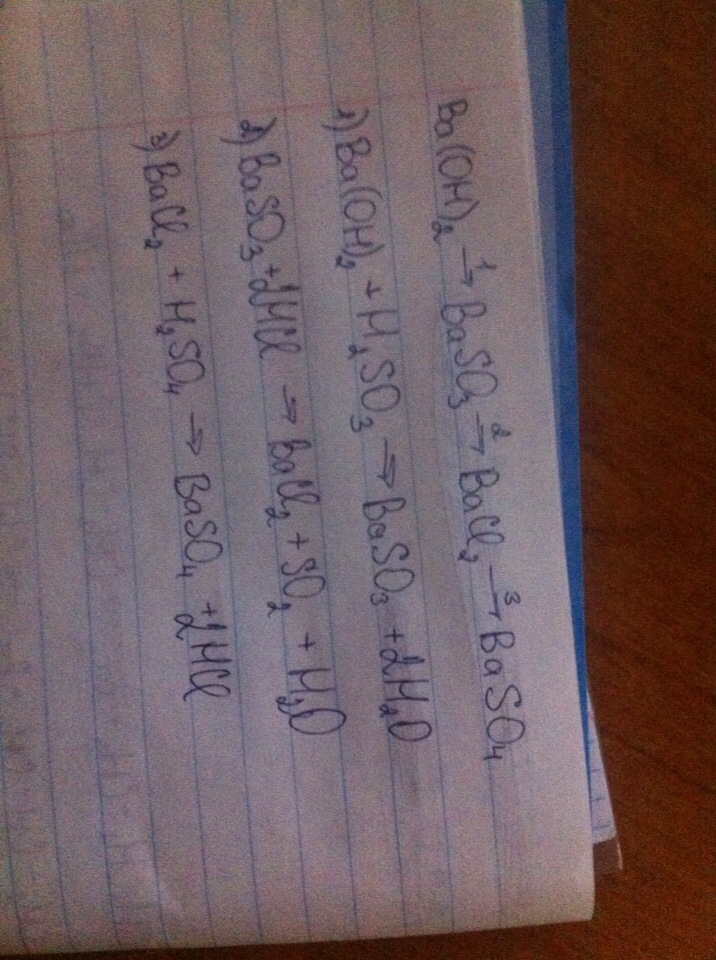 Ba(OH)₂ →¹ BaSO₃ →² BaCl₂ →³ BaSO₄
1) Ba(OH)₂ + H₂SO₃ → BaSO₃ + 2H₂O
2) BaSO₃ + 2HCl → BaCl₂ + SO₂ + H₂O
3) BaCl₂ + H₂SO₄ → BaSO₄ + 2HCl